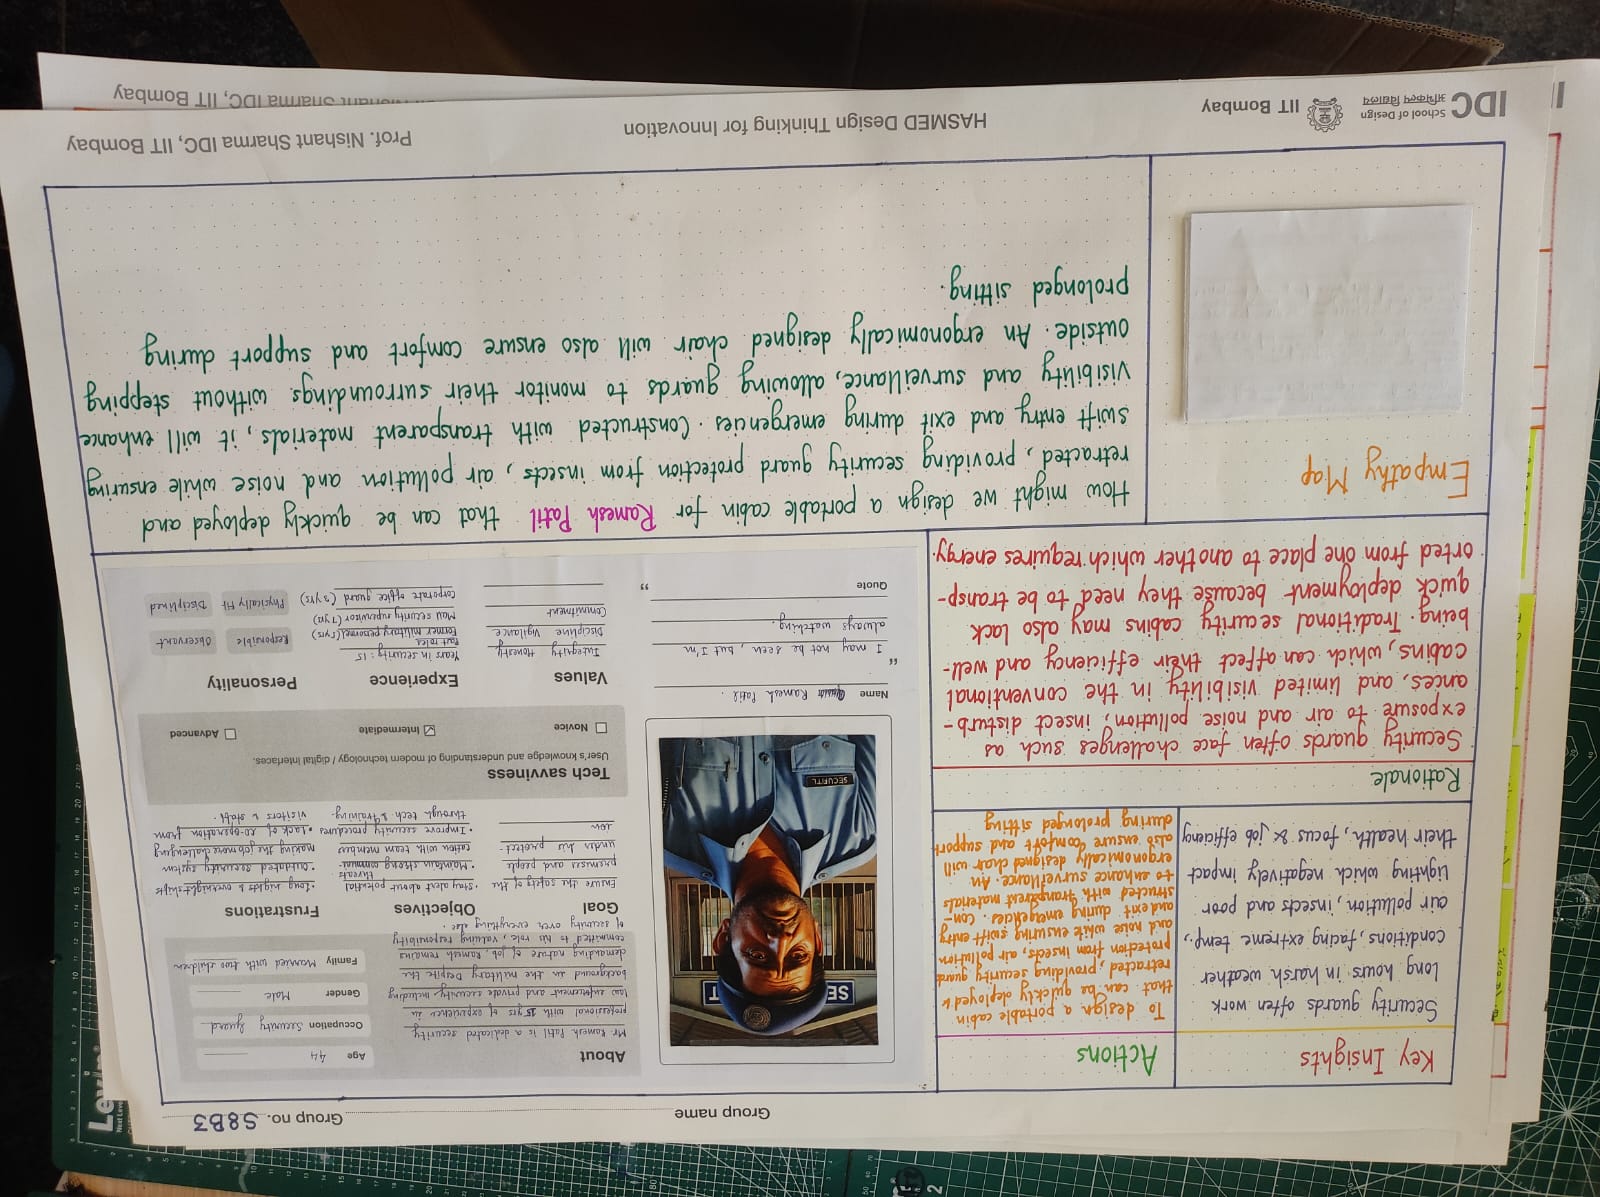 Group name
Group no. S8B3
Key Insights
Security guards often work
long hours in harsh weather
conditions, facing extreme temp.,
air pollution, insects, and poor
lighting which negatively impact
their health, focus & job efficiency
Actions
To design a portable cabin
that can be quickly deployed &
retracted, providing security guard
protection from insects, air pollution
and noise while ensuring swift entry
and exit during emergencies. Con-
structed with transparent materials
to enhance surveillance. An
ergonomically designed chair will
also ensure comfort and support
during prolonged sitting
Rationale
Security guards often face challenges such as
exposure to air and noise pollution, insect disturb-
ances, and limited visibility in the conventional
cabins, which can affect their efficiency and well-
being. Traditional security cabins may also lack
quick deployment because they need to be transp-
orted from one place to another which requires energy.
SE
T
SECURITY
Name Ramesh Patil.
“
I may not be seen, but I'm
always watching.
”
Quote
About
Mr Ramesh Patil is a dedicated security
professional with 15 yrs of experience in
law enforcement and private security, including
background in the military. Despite the
demanding nature of job, Ramesh remains
committed to his role, valuing responsibility
of security over everything else.
Age 44
Occupation Security guard
Gender Male
Family Married with two children
Goal
Ensure the safety of the
premises and people
under his protect
ion
Objectives
• Stay alert about potential
threats
• Maintain strong commun
cation with team members
• Improve security procedures
through tech & training.
Frustrations
• Long nights & overnight shifts
• Outdated security system
making the job more challenging
• Lack of co-operation from
visitors & staff.
Tech savviness
User's knowledge and understanding of modern technology / digital interfaces.
Novice
Intermediate
Advanced
Values
Integrity Honesty
Discipline Vigilance
Commitment
Experience
Years in security: 15
Past roles
Former military personnel (5 yrs)
Mall security supervisor (7 yrs)
Corporate office guard (3 yrs)
Personality
Responsible
Observant
Physically Fit
Disciplined
How might we design a portable cabin for Ramesh Patil that can be quickly deployed and
retracted, providing security guard protection from insects, air pollution and noise while ensuring
swift entry and exit during emergencies. Constructed with transparent materials, it will enhance
visibility and surveillance, allowing guards to monitor their surroundings without stepping
outside. An ergonomically designed chair will also ensure comfort and support during
prolonged sitting.
Empathy Map
IDC School of Design
अभिकल्प विद्यालय
IIT Bombay
HASMED Design Thinking for Innovation
Prof. Nishant Sharma IDC, IIT Bombay
Nishant Sharma IDC, IIT Bombay